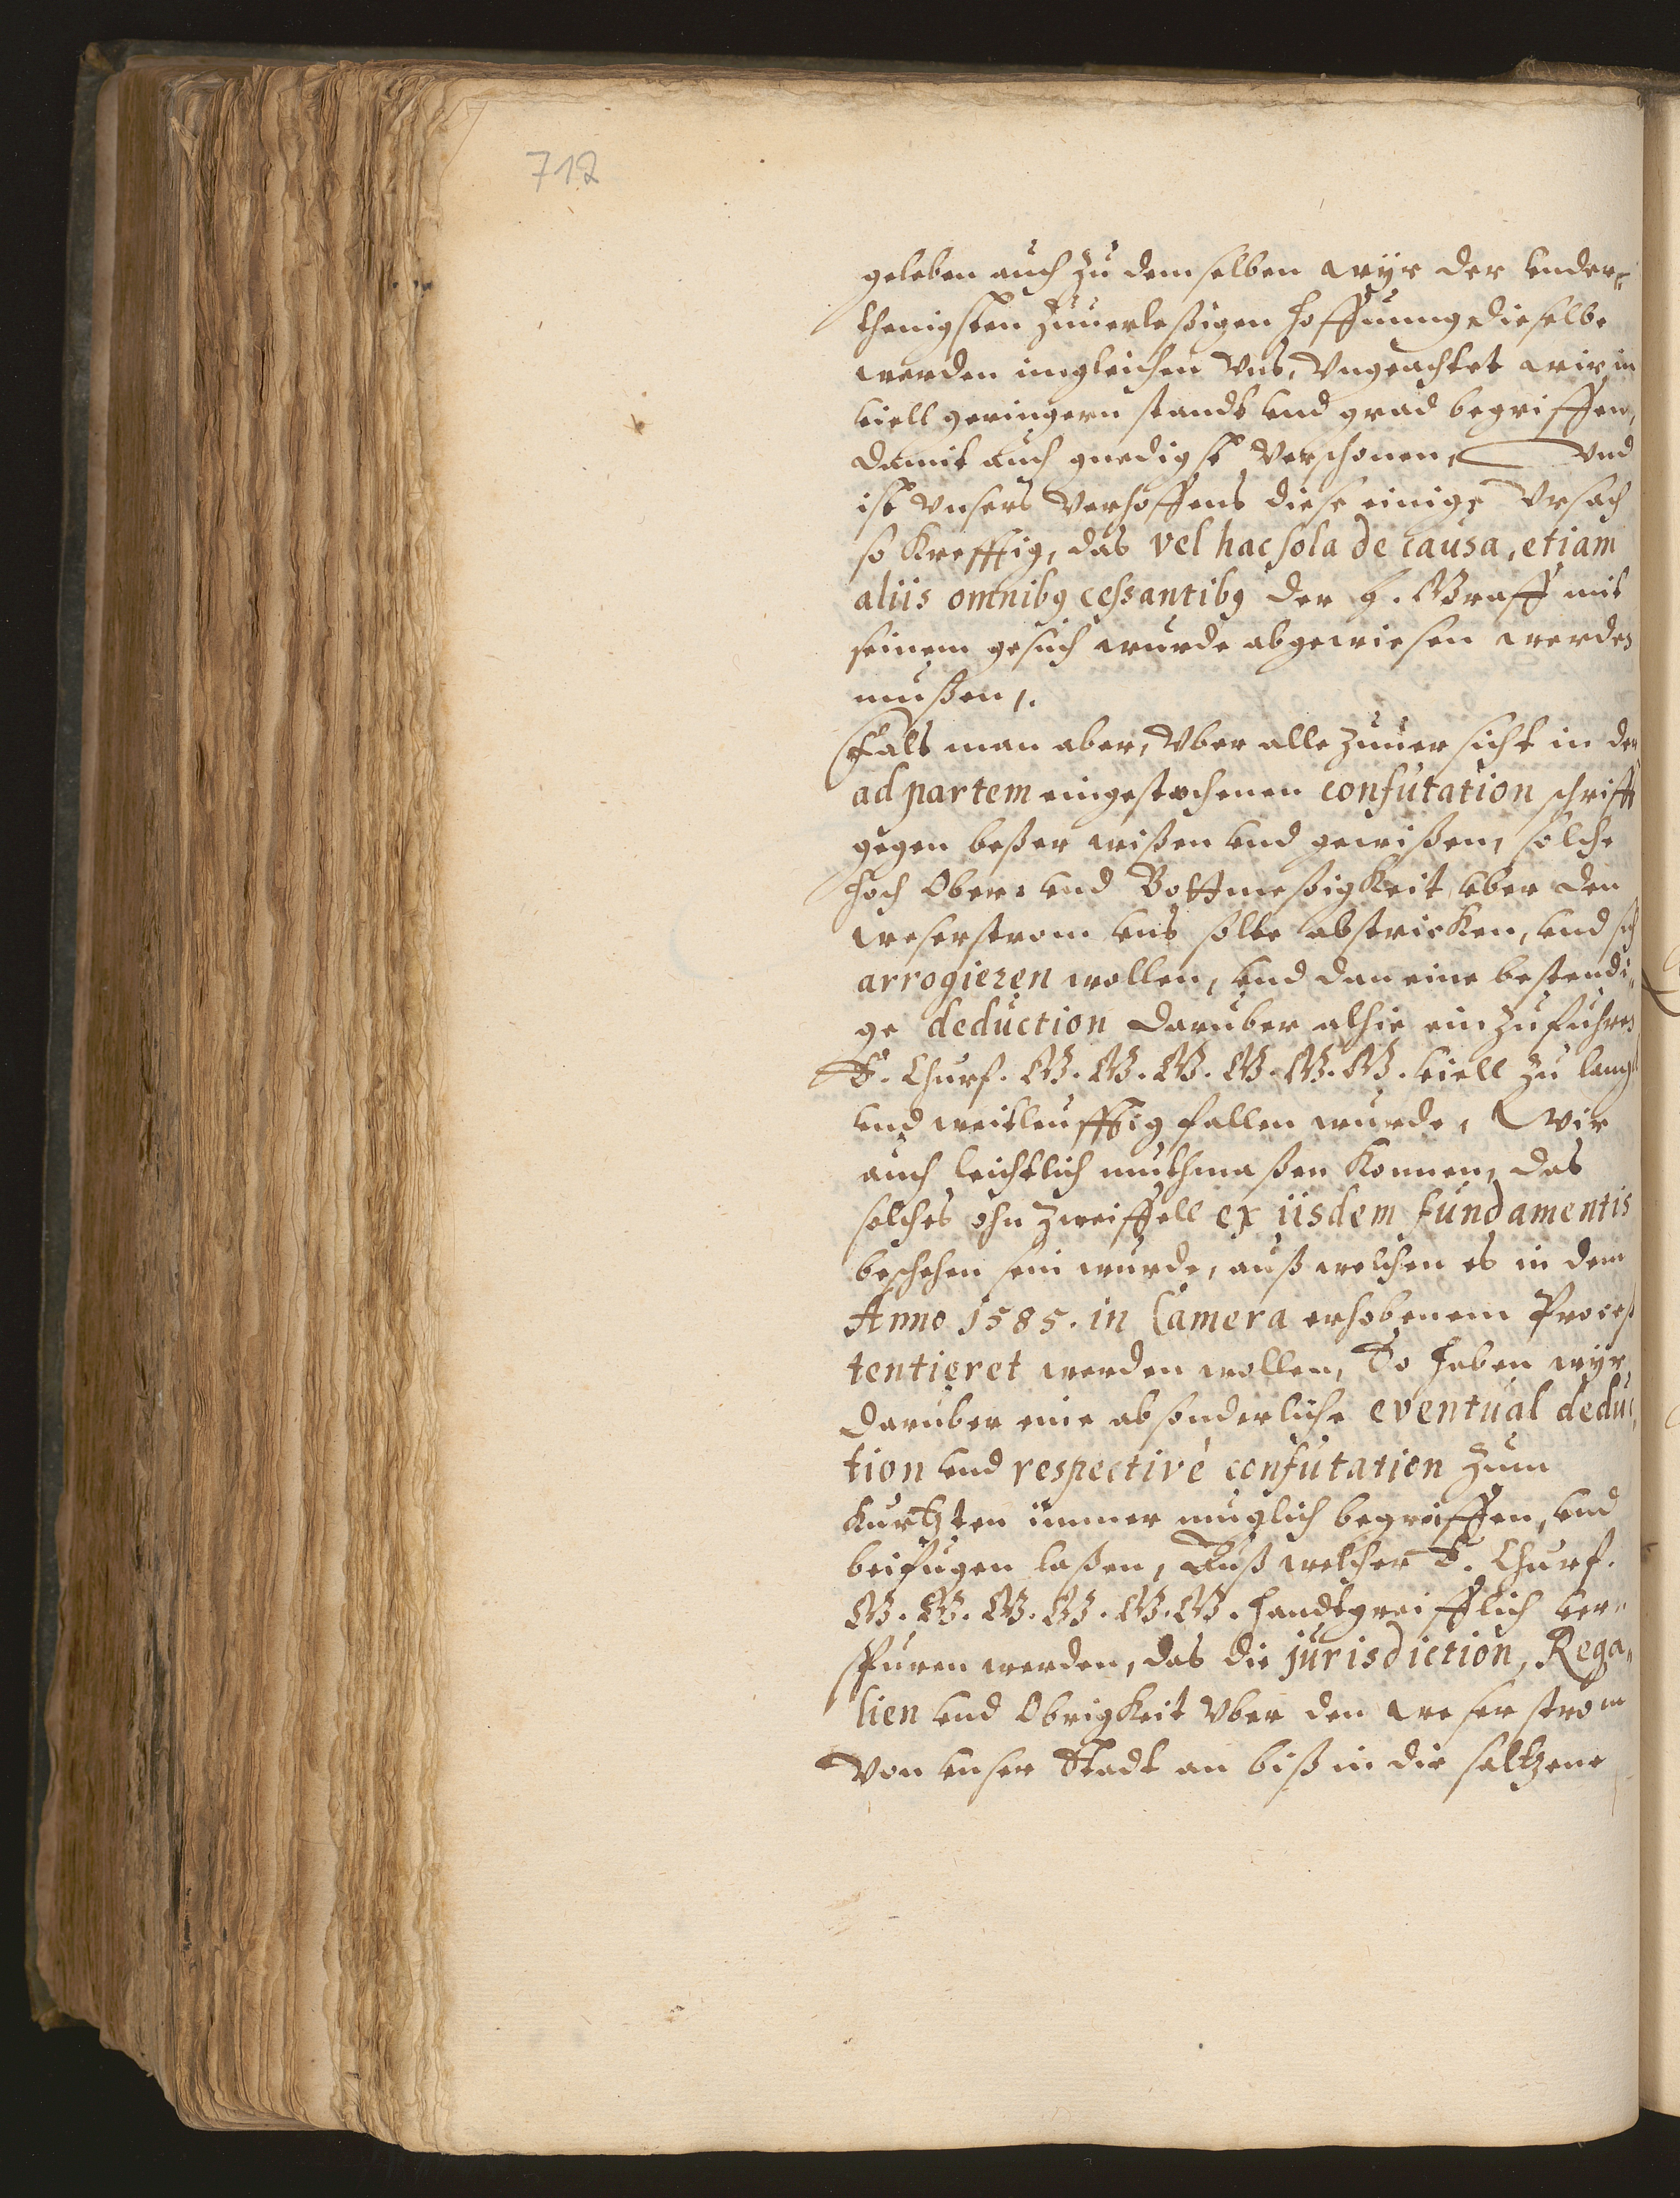 712
geleben auch zu demselben wyr der under¬
thenigsten zuuerlessigen hoffnung, dieselbe
werden imgleichen vns, vngeachtet wir in
viell geringern stands vnd grad begriffen,
damit auch gnedigst verschonen, vnd
ist vnsers verhoffens diese einige Vrsach
so krefftig, das vel hac sola de causa, etiam
aliis omnibus cessantibus der h. Graff mit
seinem gesuch wurde abgewiesen werden
mussen,.
Fals man aber, vber alle zuuersicht in der
ad partem eingestochenen confutation schrifft
gegen besser wissen vnd gewissen, solche
hoch Ober- vnd Bottmessigkeit vber den
weserstrom vns solte abstricken, vnd sich
arrogieren wollen, vnd dan eine bestendi¬
ge deduction daruber alhie einzufuhren
E. Churf. G. G. G. G. G. G. viell zu lang
vnd weitleufftig fallen wurde, Wir
auch leichtlich muthmassen konnen, das
solches ohn zweiffell ex iisdem fundamentis
beschehen sein wurde, auß welchen es in dem
Anno 1585. in Camera erhobenem Proceß
tentieret werden wollen, So haben wyr
daruber eine absonderliche eventual deduc¬
tion vnd respectivè confutation zum
kurtzten immer muglich begreiffen, vnd
beifugen lassen, Auß welcher E. Churf.
G. G. G. G. G. G. handtgreifflich ver¬
spuren werden, das die jurisdiction, Rega¬
lien vnd Obrigkeit vber den weserstrom
von vnser Stadt an biß in die saltzene